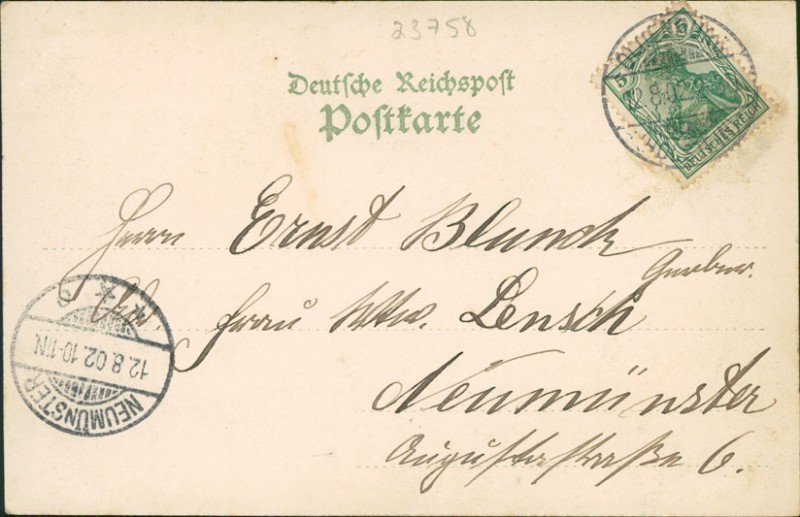 23758
Deutsche Reichspost
Postkarte
5 5
DEUTSCHES REICH
8.02
Herrn Ernst Blunck
Gerber.
Adr. Frau Wtw. Lensch
Neumünster
Augustastraße 6.
NEUMÜNSTER
12.8.02.10-11N.